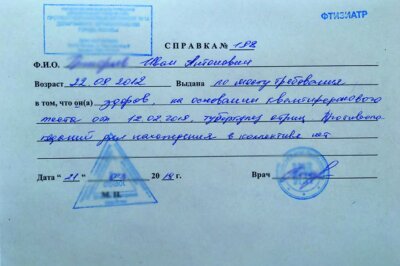 ФТИЗИАТР
СПРАВКА № 188
Ф.И.О. Антонович
Возраст 22.08.2012 Выдана по месту требования
в том, что он(а) здоров, на основании квантиферонового
теста от 12.02.2018, туберкулез отриц. Противопо-
казаний для нахождения в коллективе нет
Дата " 21 " 20 18 г. Врач
М. П.